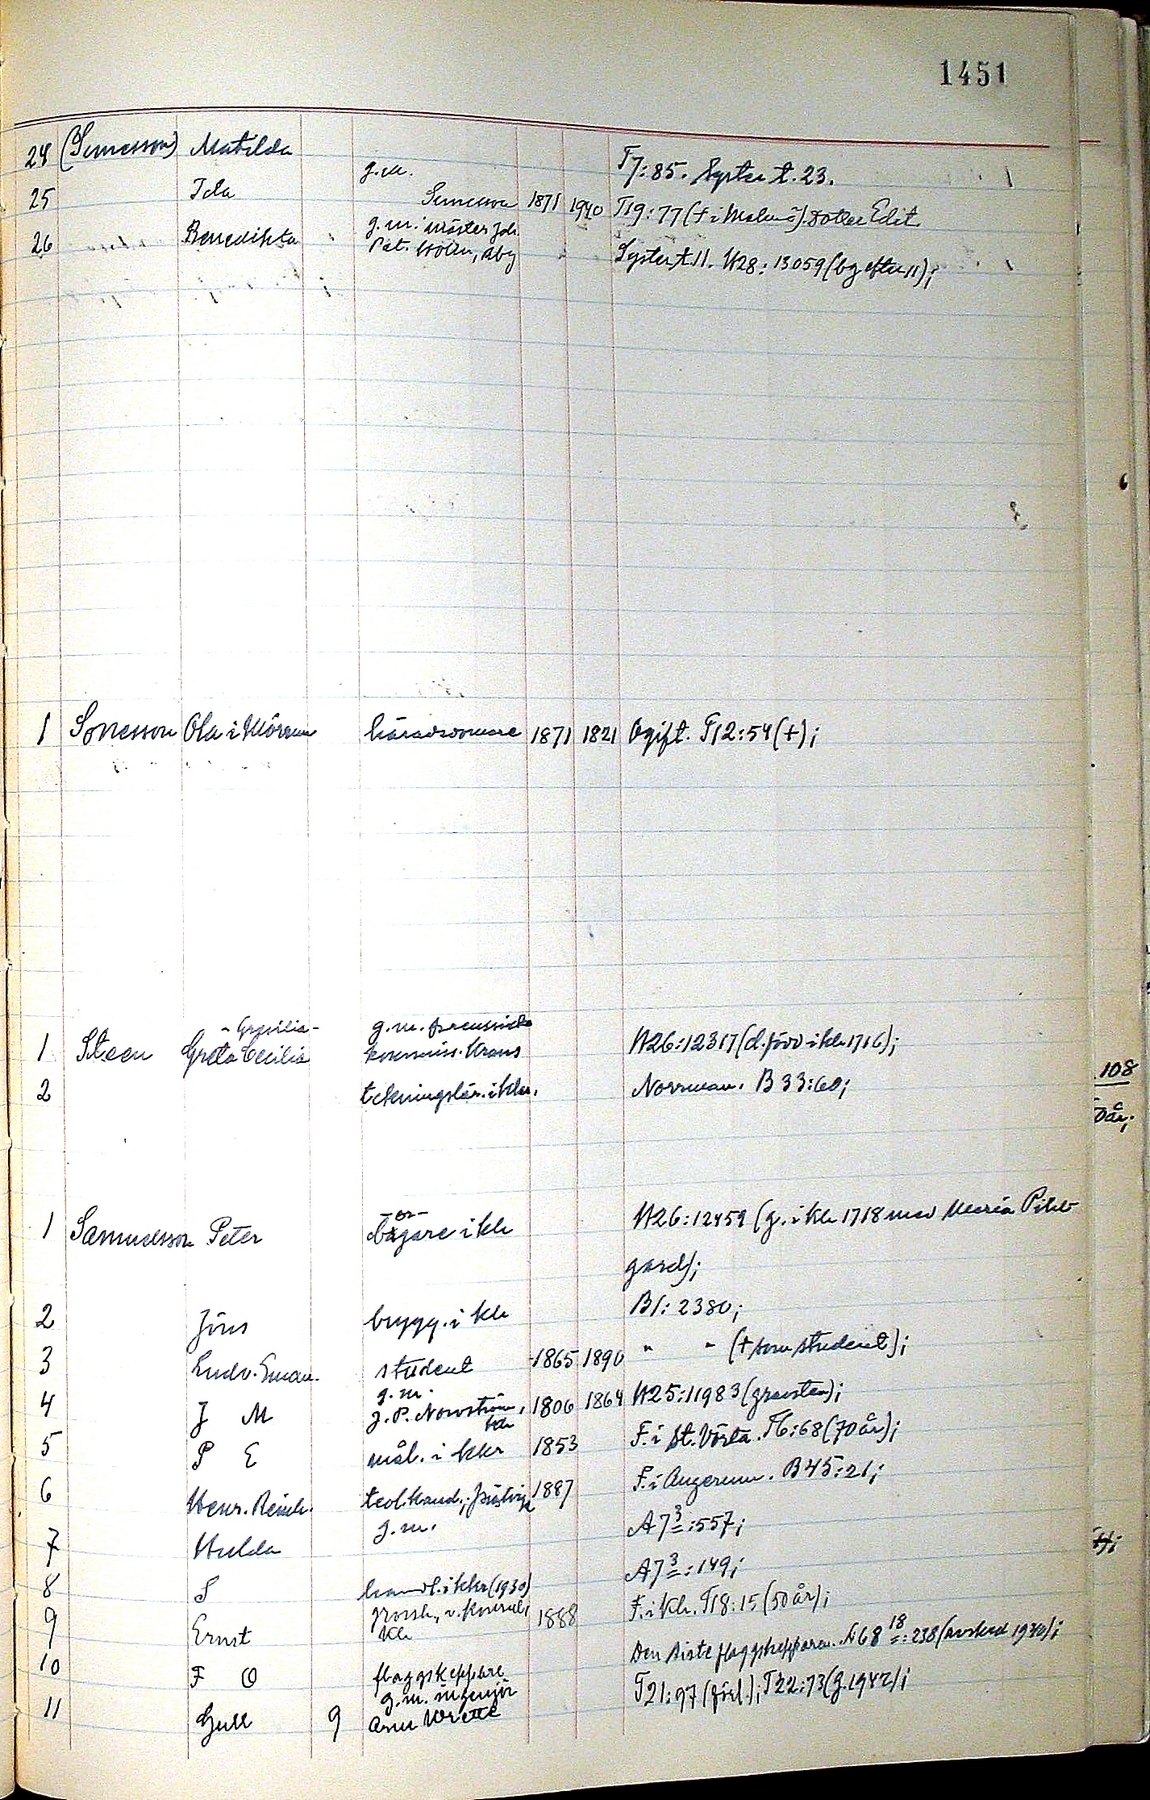 1451
24 (Sunesson) Matilda T7:85. Syster t. 23.
25 Ida g.m. Sunesson 1871 1940 T19:77 († i Malmö). Dotter Edit
26 Benedikta g.m. mäster Joh.
Pet. Holm, Aby Syster t. 11. H28:13059 (bg efter 11);
1 Sonesson Ola i Mörrum häradsdomare 1871 1821 Ogift. T12:54 (†);
1 Steen Greta Cecilia g.m. preussiske
kommiss. Kraus H26:12317 (d. född i Kh 1716);
2 teckningslär. i Khn. Norrman. B33:60;
1 Samuelsson Peter bagare i Kh H26:12459 (g. i Kh 1718 med Maria
gard);
2 Jöns brygg. i Kh B1:2380;
3 Ludv. Eman. student 1865 1890 " " († som student);
4 J M g.m.
J. P. Norrström,
Kh 1806 1864 H25:11983 (gravsten);
5 P E mål. i Khr 1853 F. i St. Vörta. T6:68 (70 år);
6 Henr. Reinh. teol. kand., 1887 F. i Augerum. B45:21;
7 Hulda g.m. A7 3:557;
8 S handl. i Khr (1930) A7 3:149;
9 Ernst grossh., v. konsul,
Kh 1888 F. i Kh. T18:15 (50 år);
10 F O flaggskeppare Den siste flaggskepparen. A68 18:238 (avsked 1930);
11 Gull 9 g.m. ingenjör
Arne Wrette T21:97 (förl.); T22:73 (g. 1942);
108
0 år;